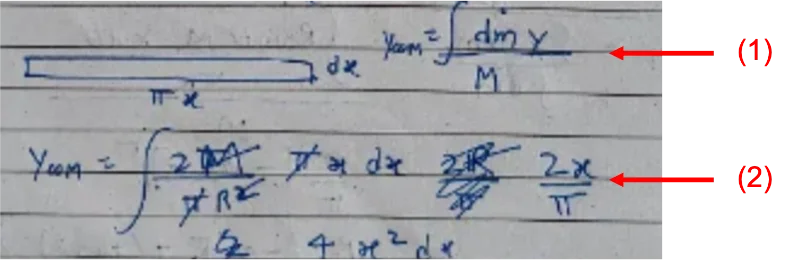 Y_COM = ∫ dm y / M (1)
dx
π x
Y_COM = ∫ 2M / πR² π x dx 2x / π (2)
4 x² dx